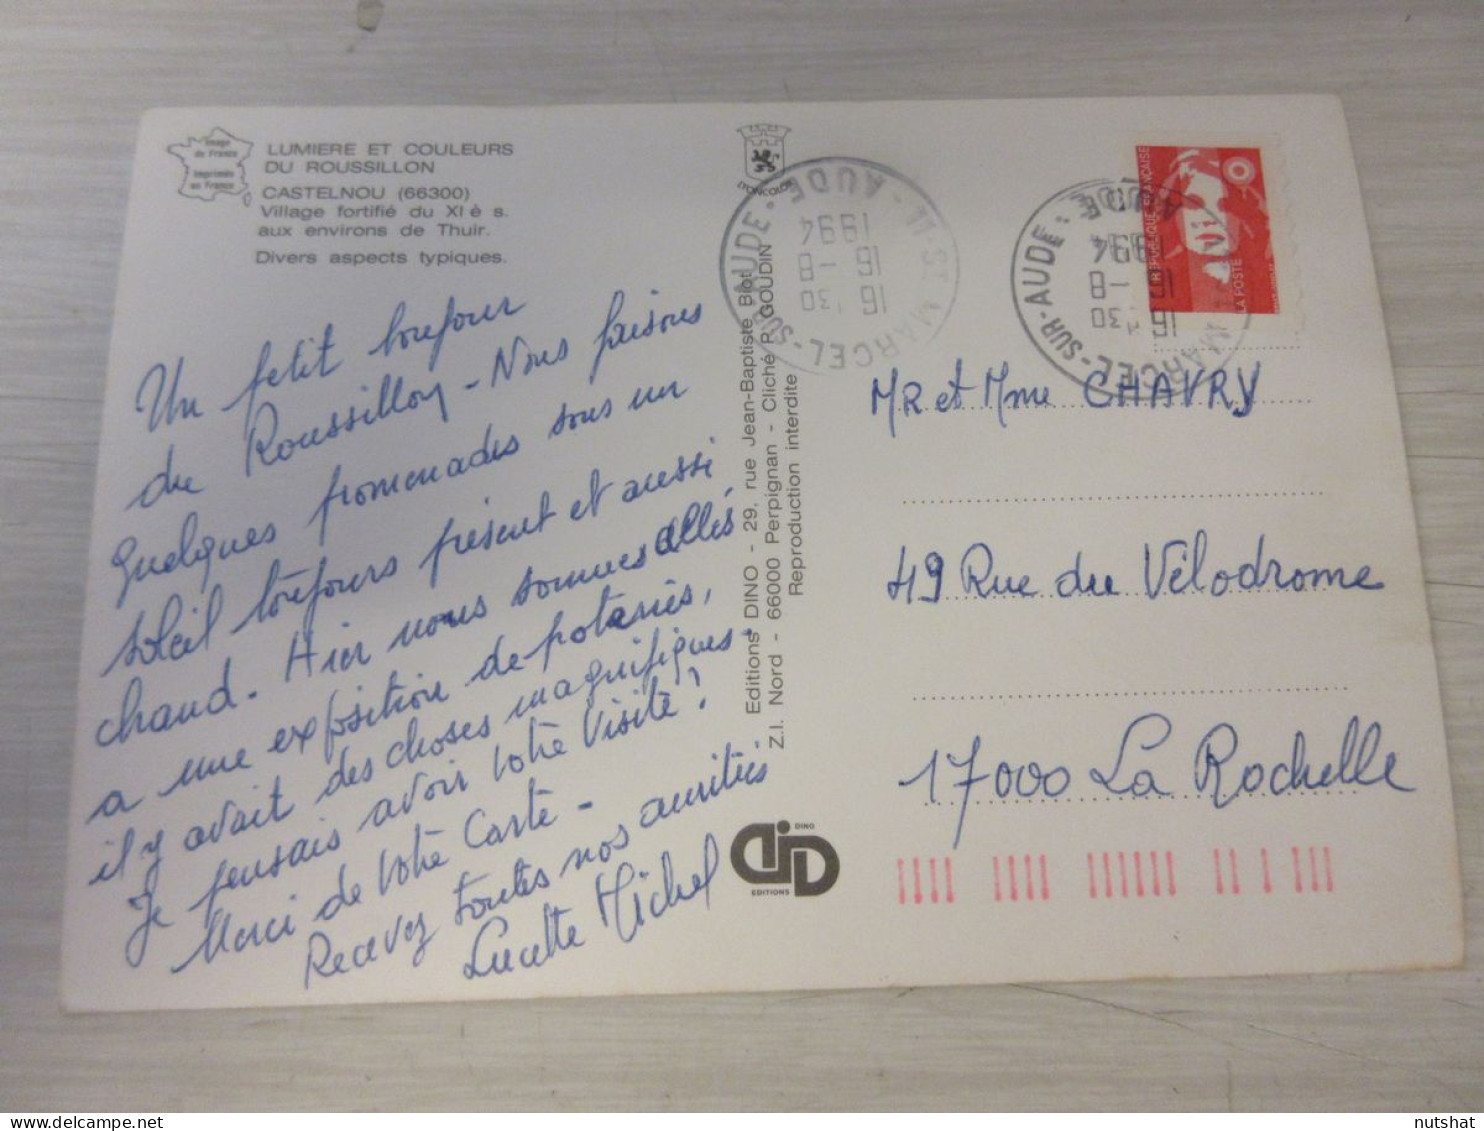 Image
de France
Imprimée
en France
LUMIERE ET COULEURS
DU ROUSSILLON
CASTELNOU (66300)
Village fortifié du XI è s.
aux environs de Thuir.
Divers aspects typiques.
Un petit bonjour
du Roussillon - Nous faisons
quelques promenades sous un
soleil toujours présent et aussi
chaud. Hier nous sommes allés
a une exposition de poteries,
il y avait des choses magnifiques.
Je pensais avoir votre visite?
Merci de votre Carte -
Recevez toutes nos amitiés
Lucette Michel
LYONCOLOR
Editions DINO - 29, rue Jean-Baptiste Biot
Z.I. Nord - 66000 Perpignan - Cliché R. GOUDIN
Reproduction interdite
DINO
EDITIONS
11 - ST MARCEL-SUR-AUDE
AUDE
16 H 30
16 - 8
1994
MARCEL-SUR-AUDE
AUDE
16 H 30
16 - 8
1994
REPUBLIQUE FRANÇAISE
LA POSTE
MR et Mme CHAVRY
49 Rue du Vélodrome
17000 La Rochelle
nutshat